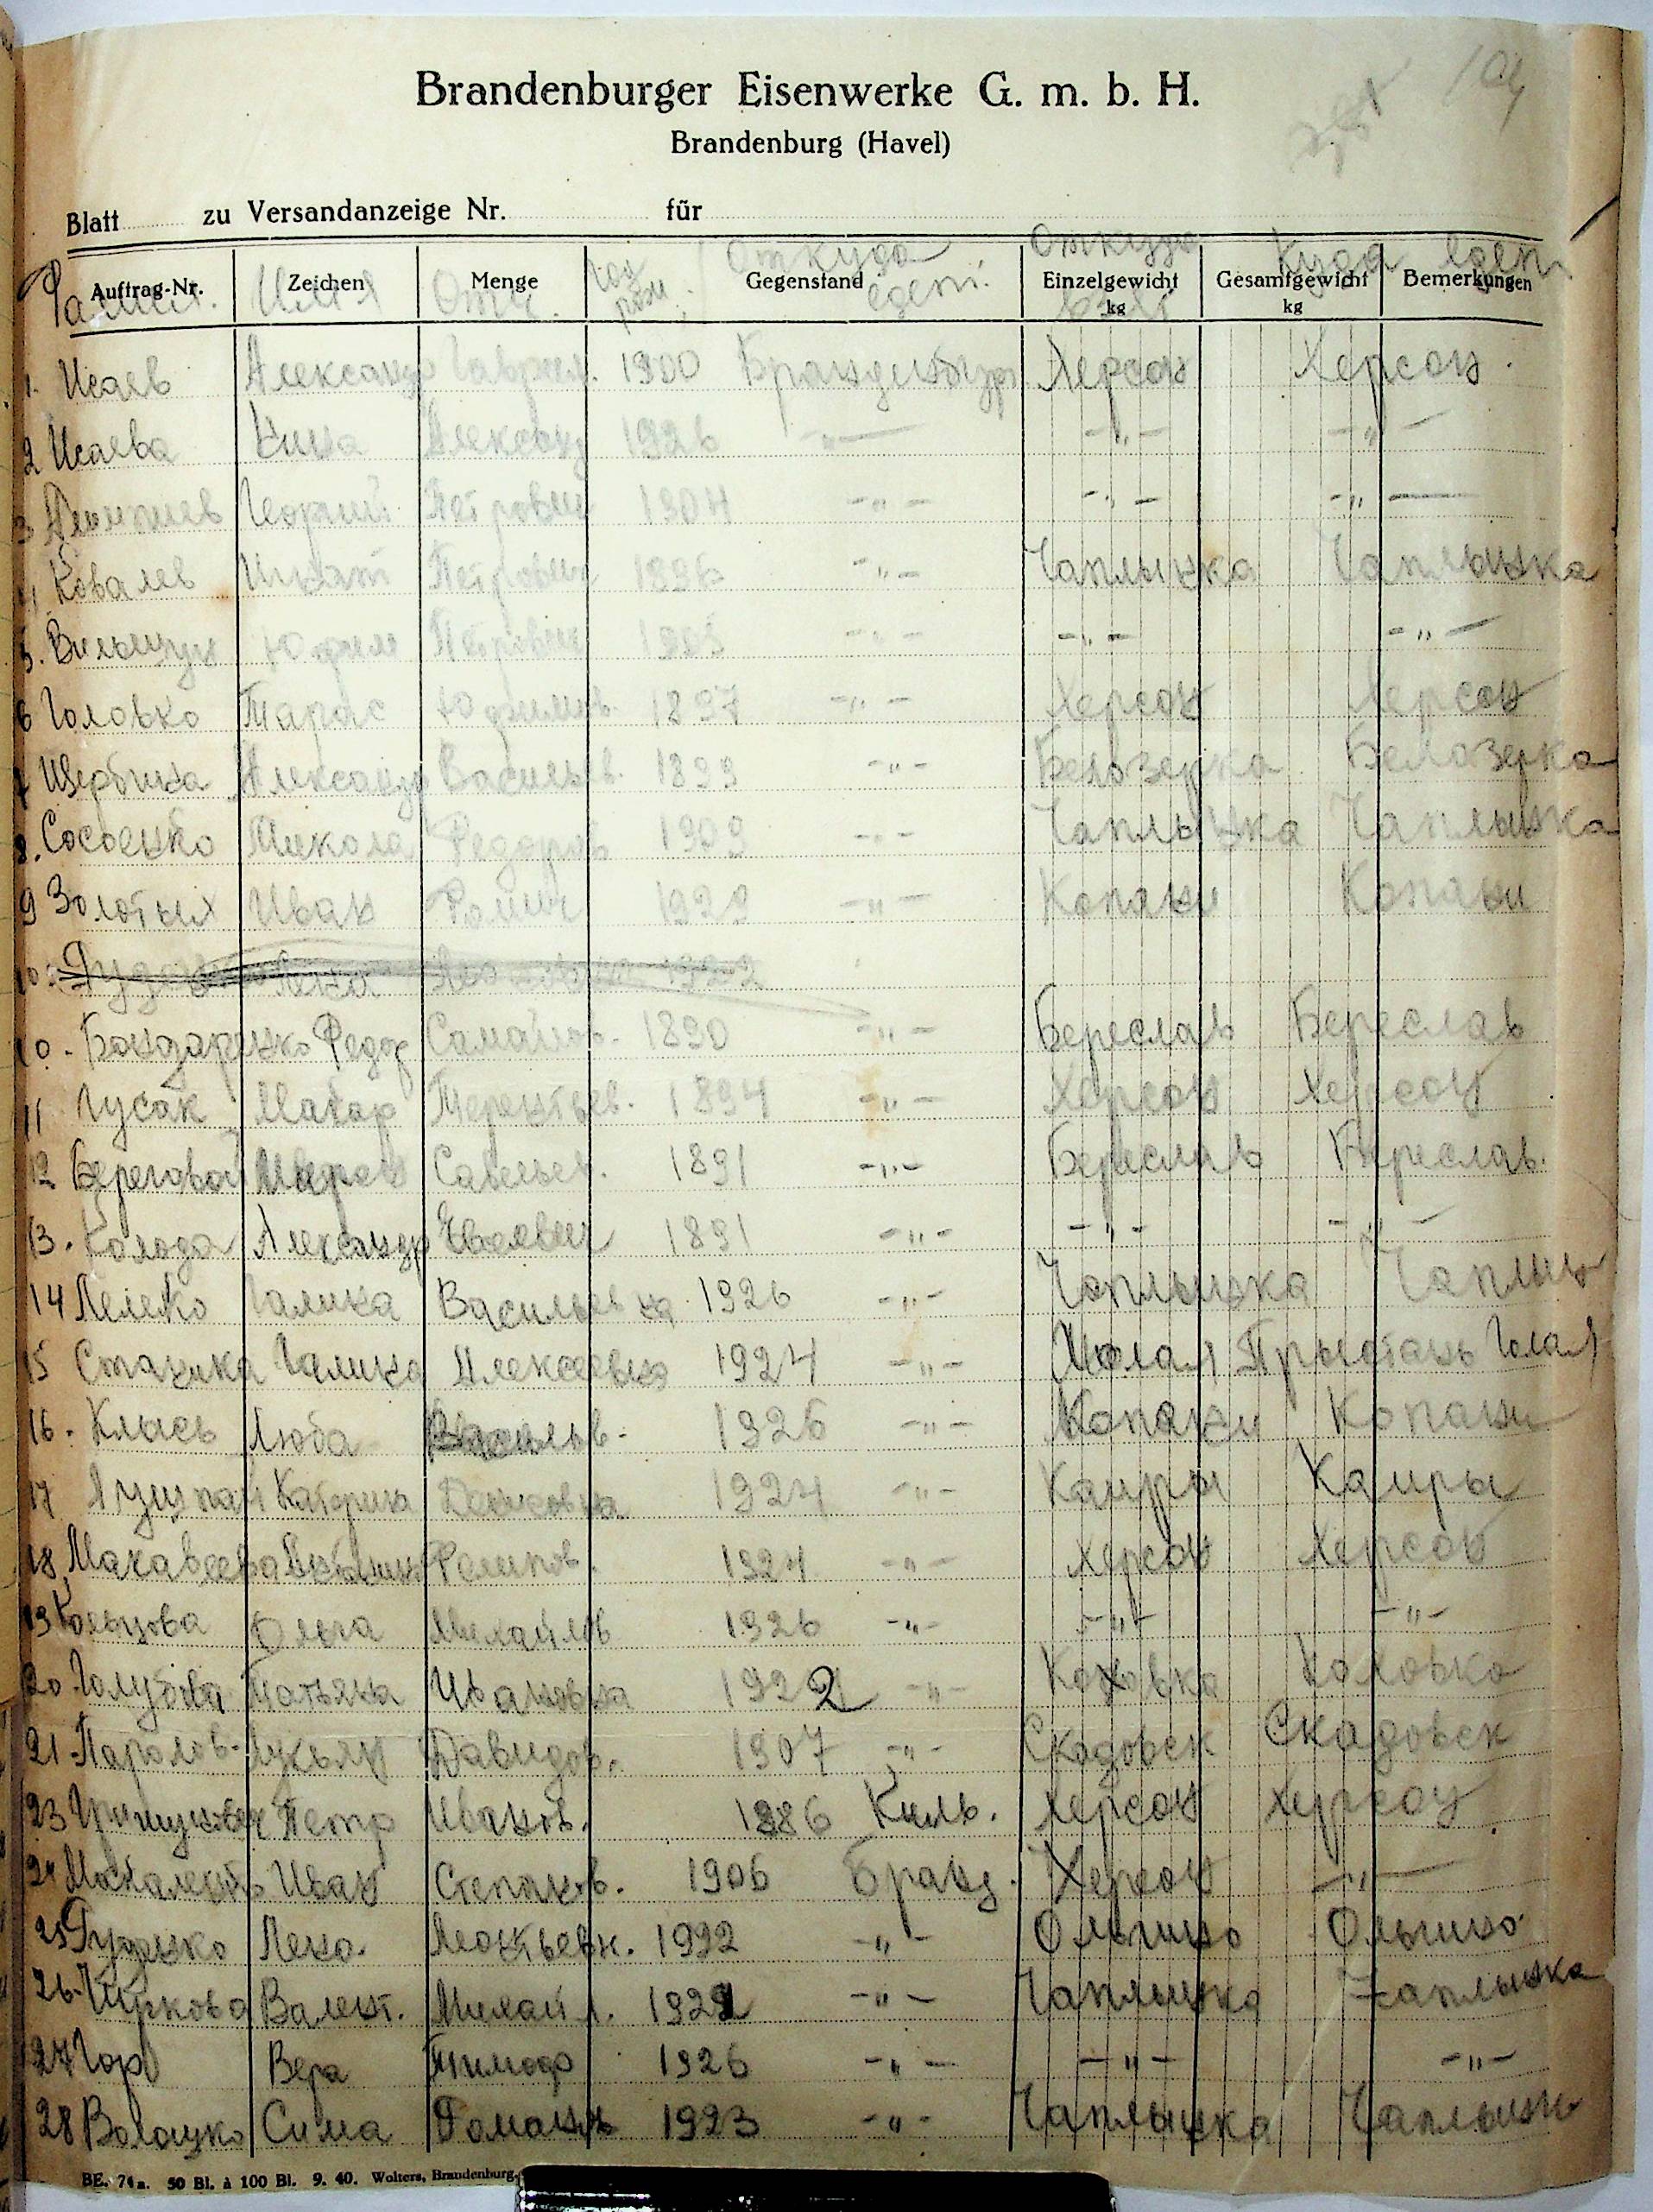 104
Brandenburger Eisenwerke G. m. b. H.
Brandenburg (Havel)
Blatt zu Versandanzeige Nr. für
Auftrag-Nr. Zeichen Menge Gegenstand Einzelgewicht kg Gesamtgewicht kg Bemerkungen
Фамил. Имя Отч. год рож. Откуда едет. Откуда Куда едет
1. Исаев Александр Гаврил. 1900 Бранденбург Херсон Херсон.
2 Исаева Нина Александ 1926 -"- -"- -"-
3 Георгий Петрович 1904 -"- -"- -"-
4 Ковалев Игнат Петрович 1896 -"- Чаплынка Чаплынка
5. Юфим Петрович -"- -"- -"-
6 Головко Тарас Юфимов. 1897 -"- Херсон Херсон
7 Щербина Александр Васильев. 1899 -"- Белозерка Белозерка
8. Микола Федоров 1909 -"- Чаплынка Чаплынка
9 Золотых Иван Фомич -"- Копани Копани
10 Лена 1922
10. Бондаренко Федор Самойлов. 1890 -"- Береслав Береслав
11 Гусак Макар Терентьев. 1894 -"- Херсон Херсон
12 Береговой Савельев. 1891 -"- Береслав Береслав.
13. Колода Александр 1891 -"- -"- -"-
14 Лелеко Галина Васильевна 1926 -"- Чаплынка Чаплын
15 Галина Алексеевна 1924 -"- Голая Прыстань Голая
16. Клась Люба Васильев. 1926 -"- Копани Копани
17 Катерина Денисовна 1924 -"- Каиры Каиры
18. Макавеева Филипов. 1924 -"- Херсон Херсон
19 Кольцова Ольга Михайлов 1926 -"- -"- -"-
20. Голубова Татьяна Ивановна 1922 -"-
21. Лукьян Давидов. 1907 -"- Скадовск Скадовск
23 Петр Иванов. 1886 Киль. Херсон Херсон
24 Иван Степанов. 1906 Бранд. Херсон -"-
25 Руденко Лена. Леонтьевн. 1922 -"- Ольгино Ольгино
26. Чиркова Валент. Михайл. -"- Чаплынка Чаплынка
27 Гор Вера Тимоф 1926 -"- -"- -"-
28 Сима Романов 1923 -"- Чаплынка Чаплынк
BE. 74a. 50 Bl. à 100 Bl. 9. 40. Wolters, Brandenburg.